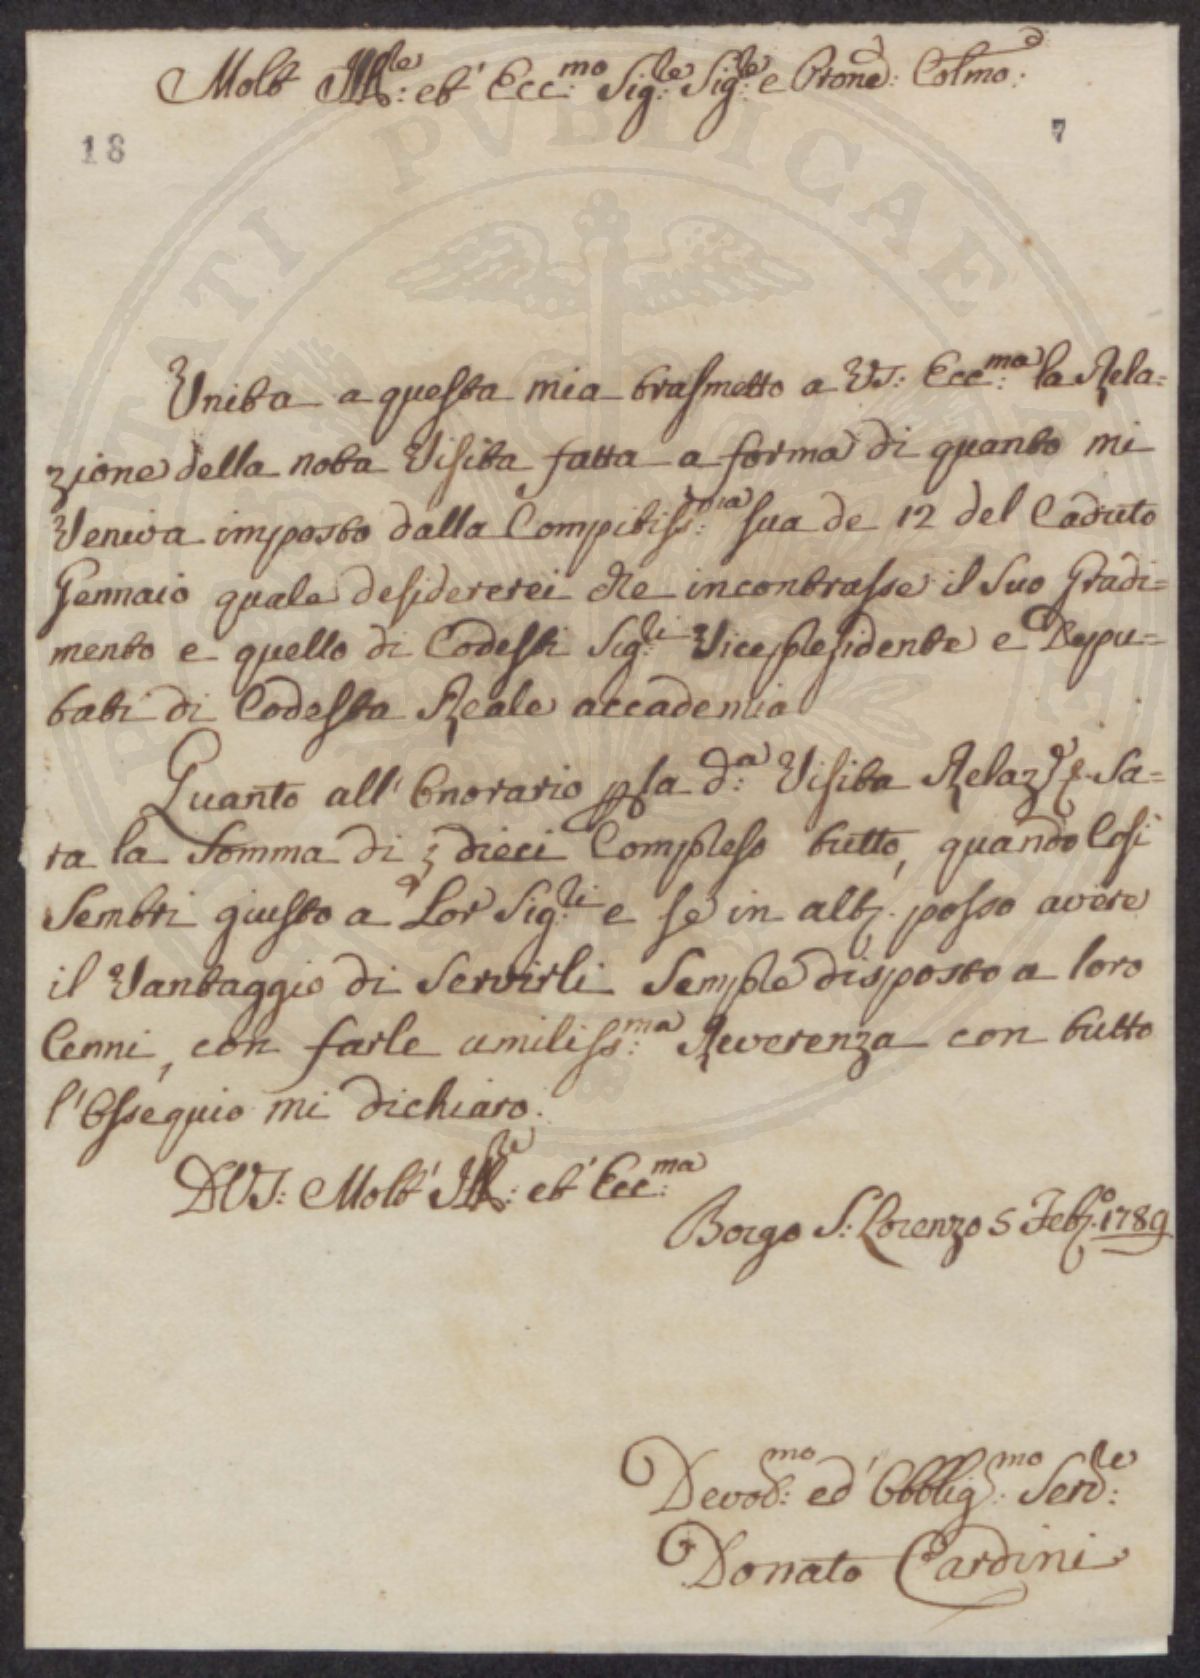 Molt' Ill:re et' Ecc:mo Sig:re Sig:re e Prone: Colmo:
18
7
Unita a questa mia trasmetto a VS: Ecc:ma la Rela=
zione della nota Visita fatta a forma di quanto mi
Veniva imposto dalla Compitiss:ma sua de 12 del Caduto
Gennaio quale desidererei che incontrasse il Suo Gradi=
mento e quello di Codesti Sig:ri Vicepresidente e Depu=
tati di Codesta Reale accademia
Quanto all' Onorario p la d:a Visita Relaz:e Sa=
ra la Somma di dieci Compreso tutto, quando Cosi
Sembri giusto a Lor Sig:ri e se in alt: posso avere
il Vantaggio di Servirli Sempre disposto a loro
Cenni, con farle umiliss:ma Reverenza con tutto
l'Ossequio mi dichiaro.
D VS: Molt' Ill:re et' Ecc:ma
Borgo S: Lorenzo 5 Feb:o 1789
Devo:mo ed' Obblig:mo Serv:re
Donato Cardini
PUBLICAE